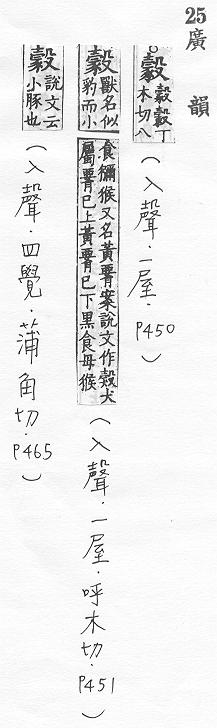 25 廣韻
豰 豰豰丁木切八
(入聲.一屋.P450)
豰 獸名似豹而小食獼猴又名黃𦝫案說文作㺉犬屬𦝫巳上黃𦝫巳下黑食母猴
(入聲.一屋.呼木切.P451)
豰 說文云小豚也
(入聲.四覺.蒲角切.P465)